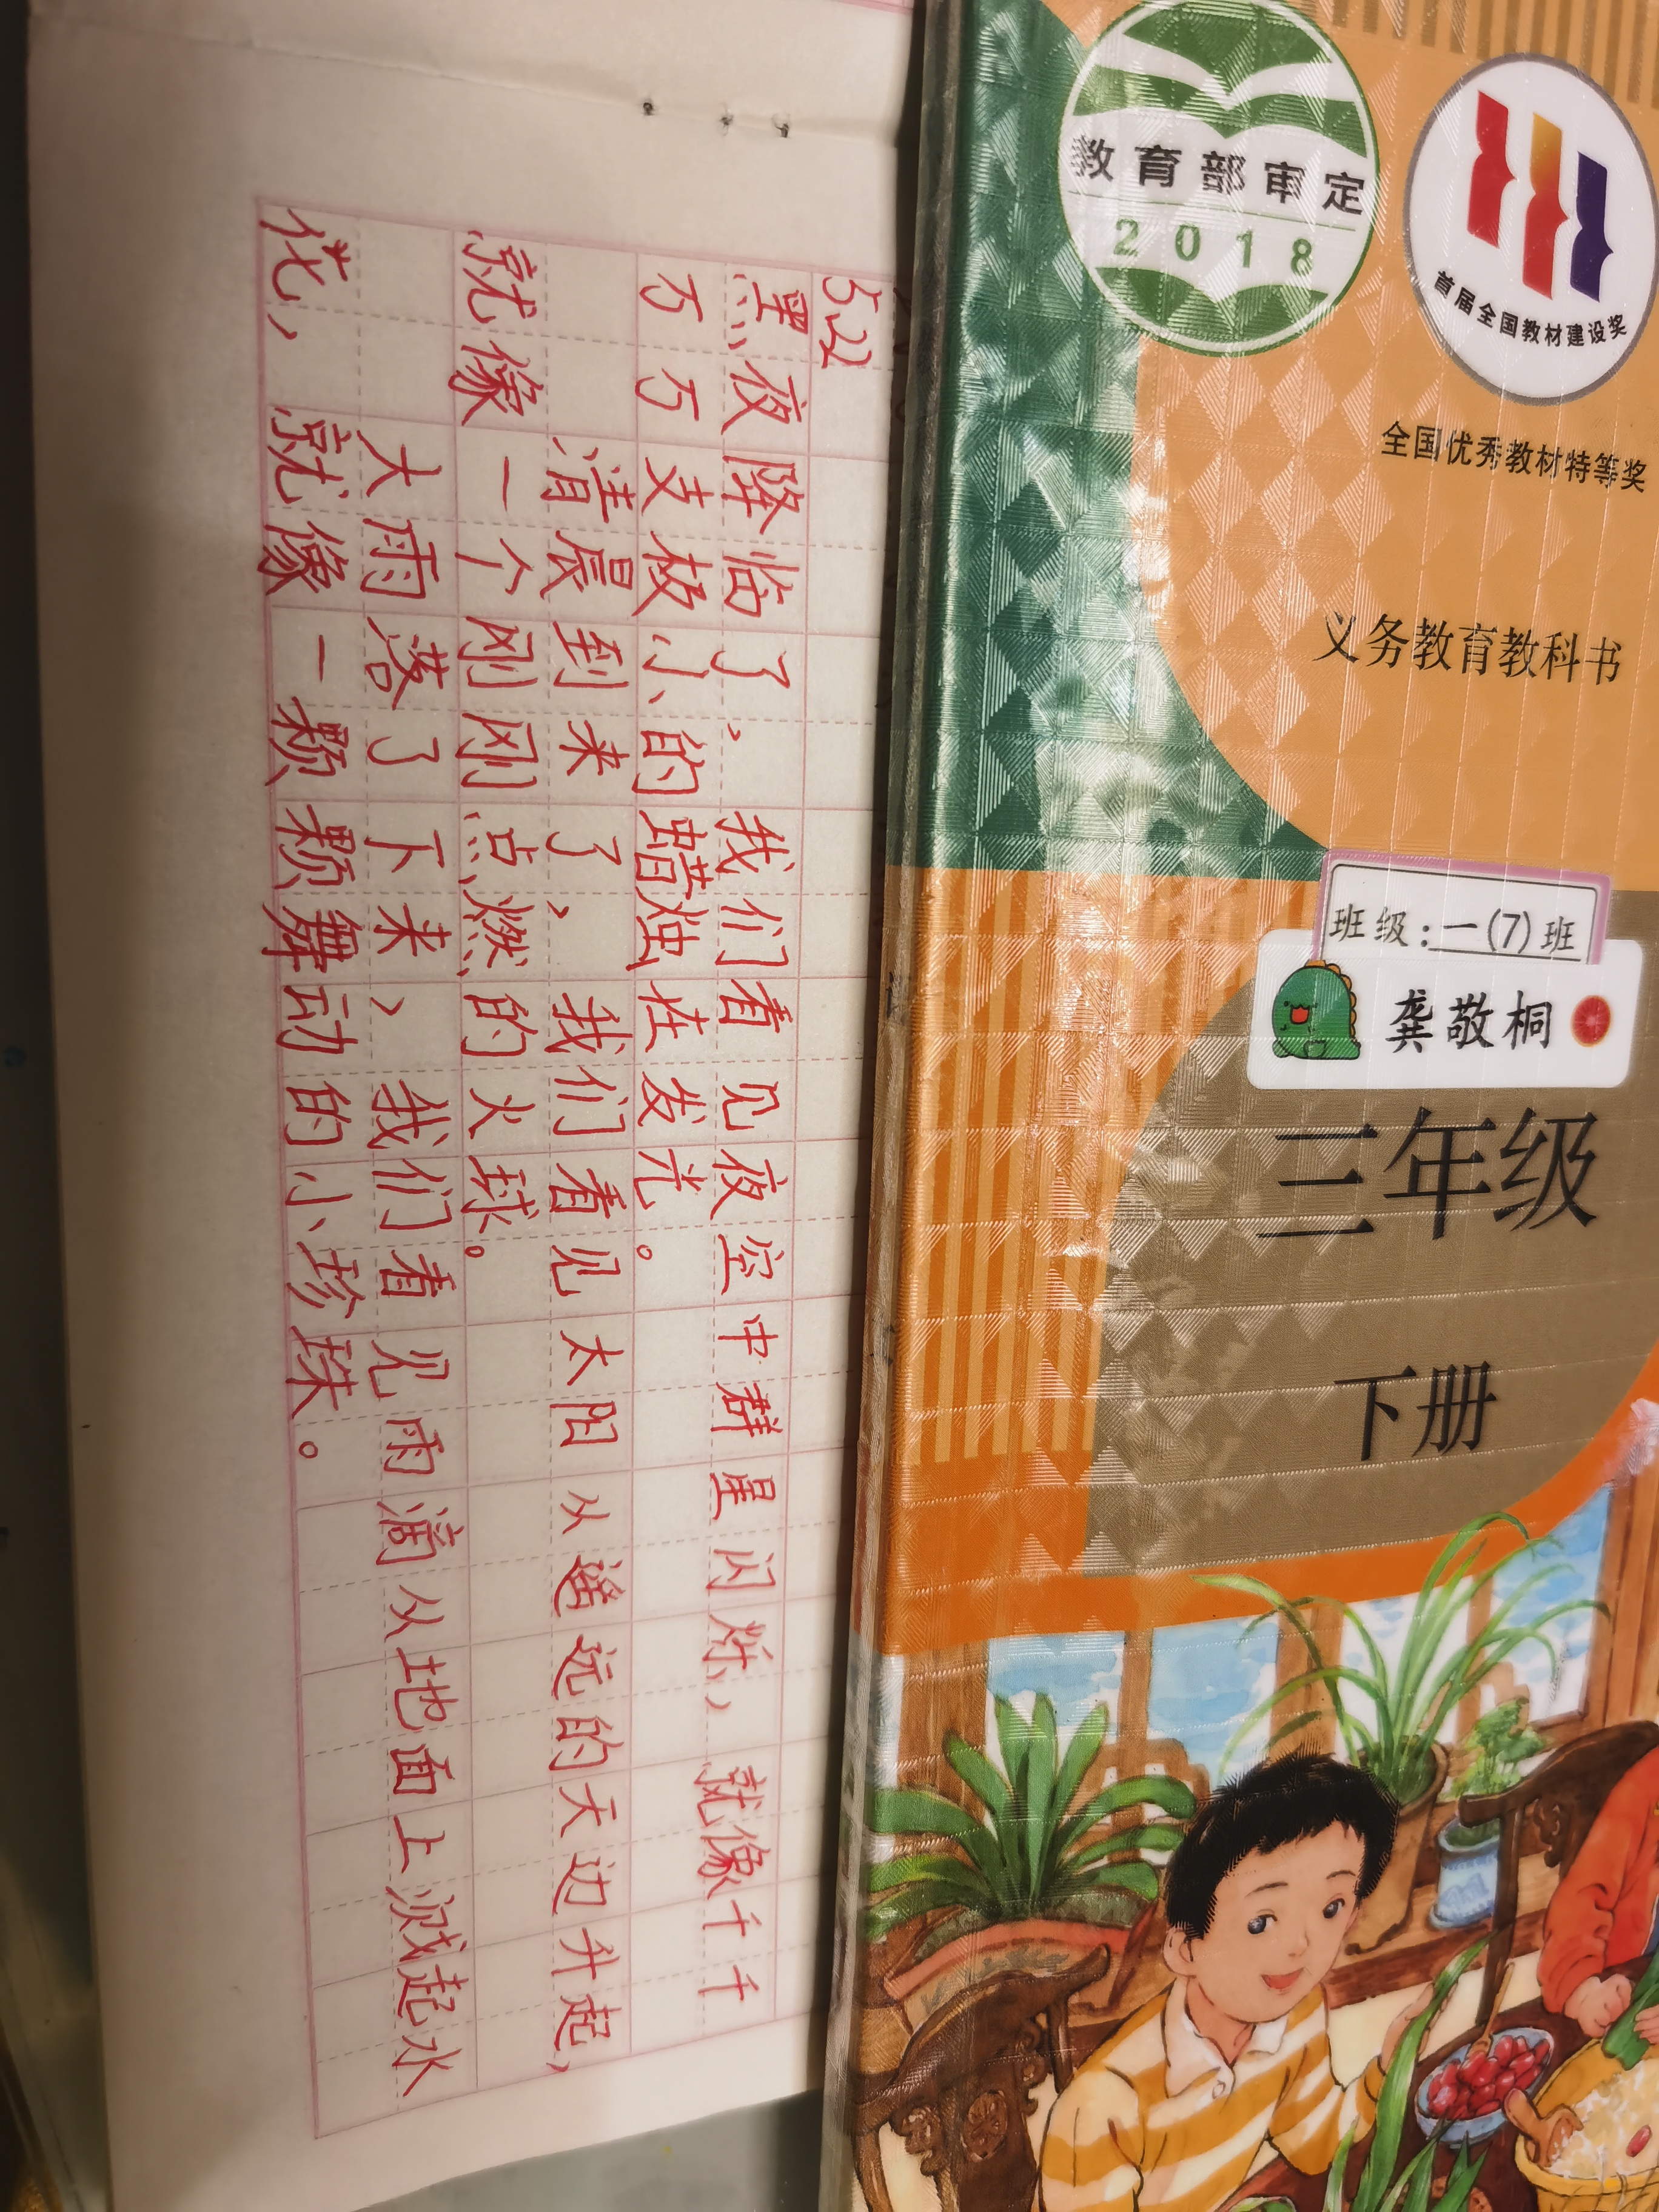 522
黑夜降临了，我们看见夜空中群星闪烁，就像千千
万万支极小的蜡烛在发光。
清晨到来了，我们看见太阳从遥远的天边升起，
就像一个刚刚点燃的火球。
大雨落了下来，我们看见雨滴从地面上溅起水
花，就像一颗颗舞动的小珍珠。
教育部审定
2018
首届全国教材建设奖
全国优秀教材特等奖
义务教育教科书
班级：一(7)班
龚敬桐
三年级
下册